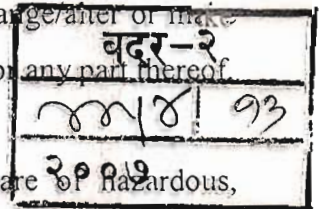 ange/alter or make
वदर-२
or any part thereof
४ | 93
२००७
are of hazardous,